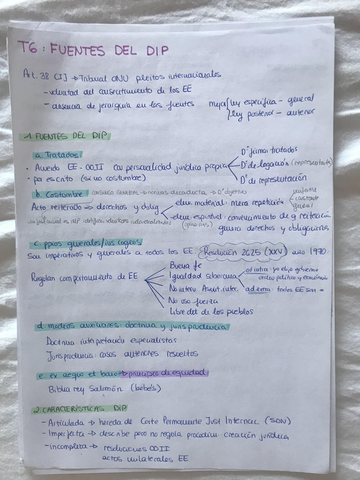 T6: FUENTES DEL DIP
Art. 38 CIJ → Tribunal ONU pleitos internacionales
- voluntad del consentimiento de los EE
- ausencia de jerarquía en las fuentes
mejor ley específica - general
ley posterior - anterior
1. FUENTES DEL DIP
a. Tratados
• Acuerdo EE - OOII con personalidad jurídica propia
• por escrito (es no costumbre)
Dº firmar tratados
Dº de legación (representación)
Dº de representación
b. Costumbre
Acto reiterado → derechos y oblig
elem. material - mera repetición
elem. espiritual - convencimiento de q repetición
genera derechos y obligaciones
c. ppios generales/ius cogens
Son inspiratorios y generales a todos los EE. Resolución 2625 (XXV) año 1970
Regulan comportamiento de EE
Buena fe
Igualdad soberana
No interv. Asunt. inter.
No uso fuerza
Libre det. de los pueblos
d. medios auxiliares: doctrina y jurisprudencia
Doctrina: interpretación especialistas
Jurisprudencia: casos anteriores resueltos
e. ex aequo et bono → principios de equidad
Biblia rey Salomón (bebés)
2. CARACTERÍSTICAS DIP
- Articulada → hereda de Corte Permanente Just Internac. (SDN)
- Imperfecta → describe pero no regula procedim creación jurídica
- incompleta → resoluciones OOII
actos unilaterales EE